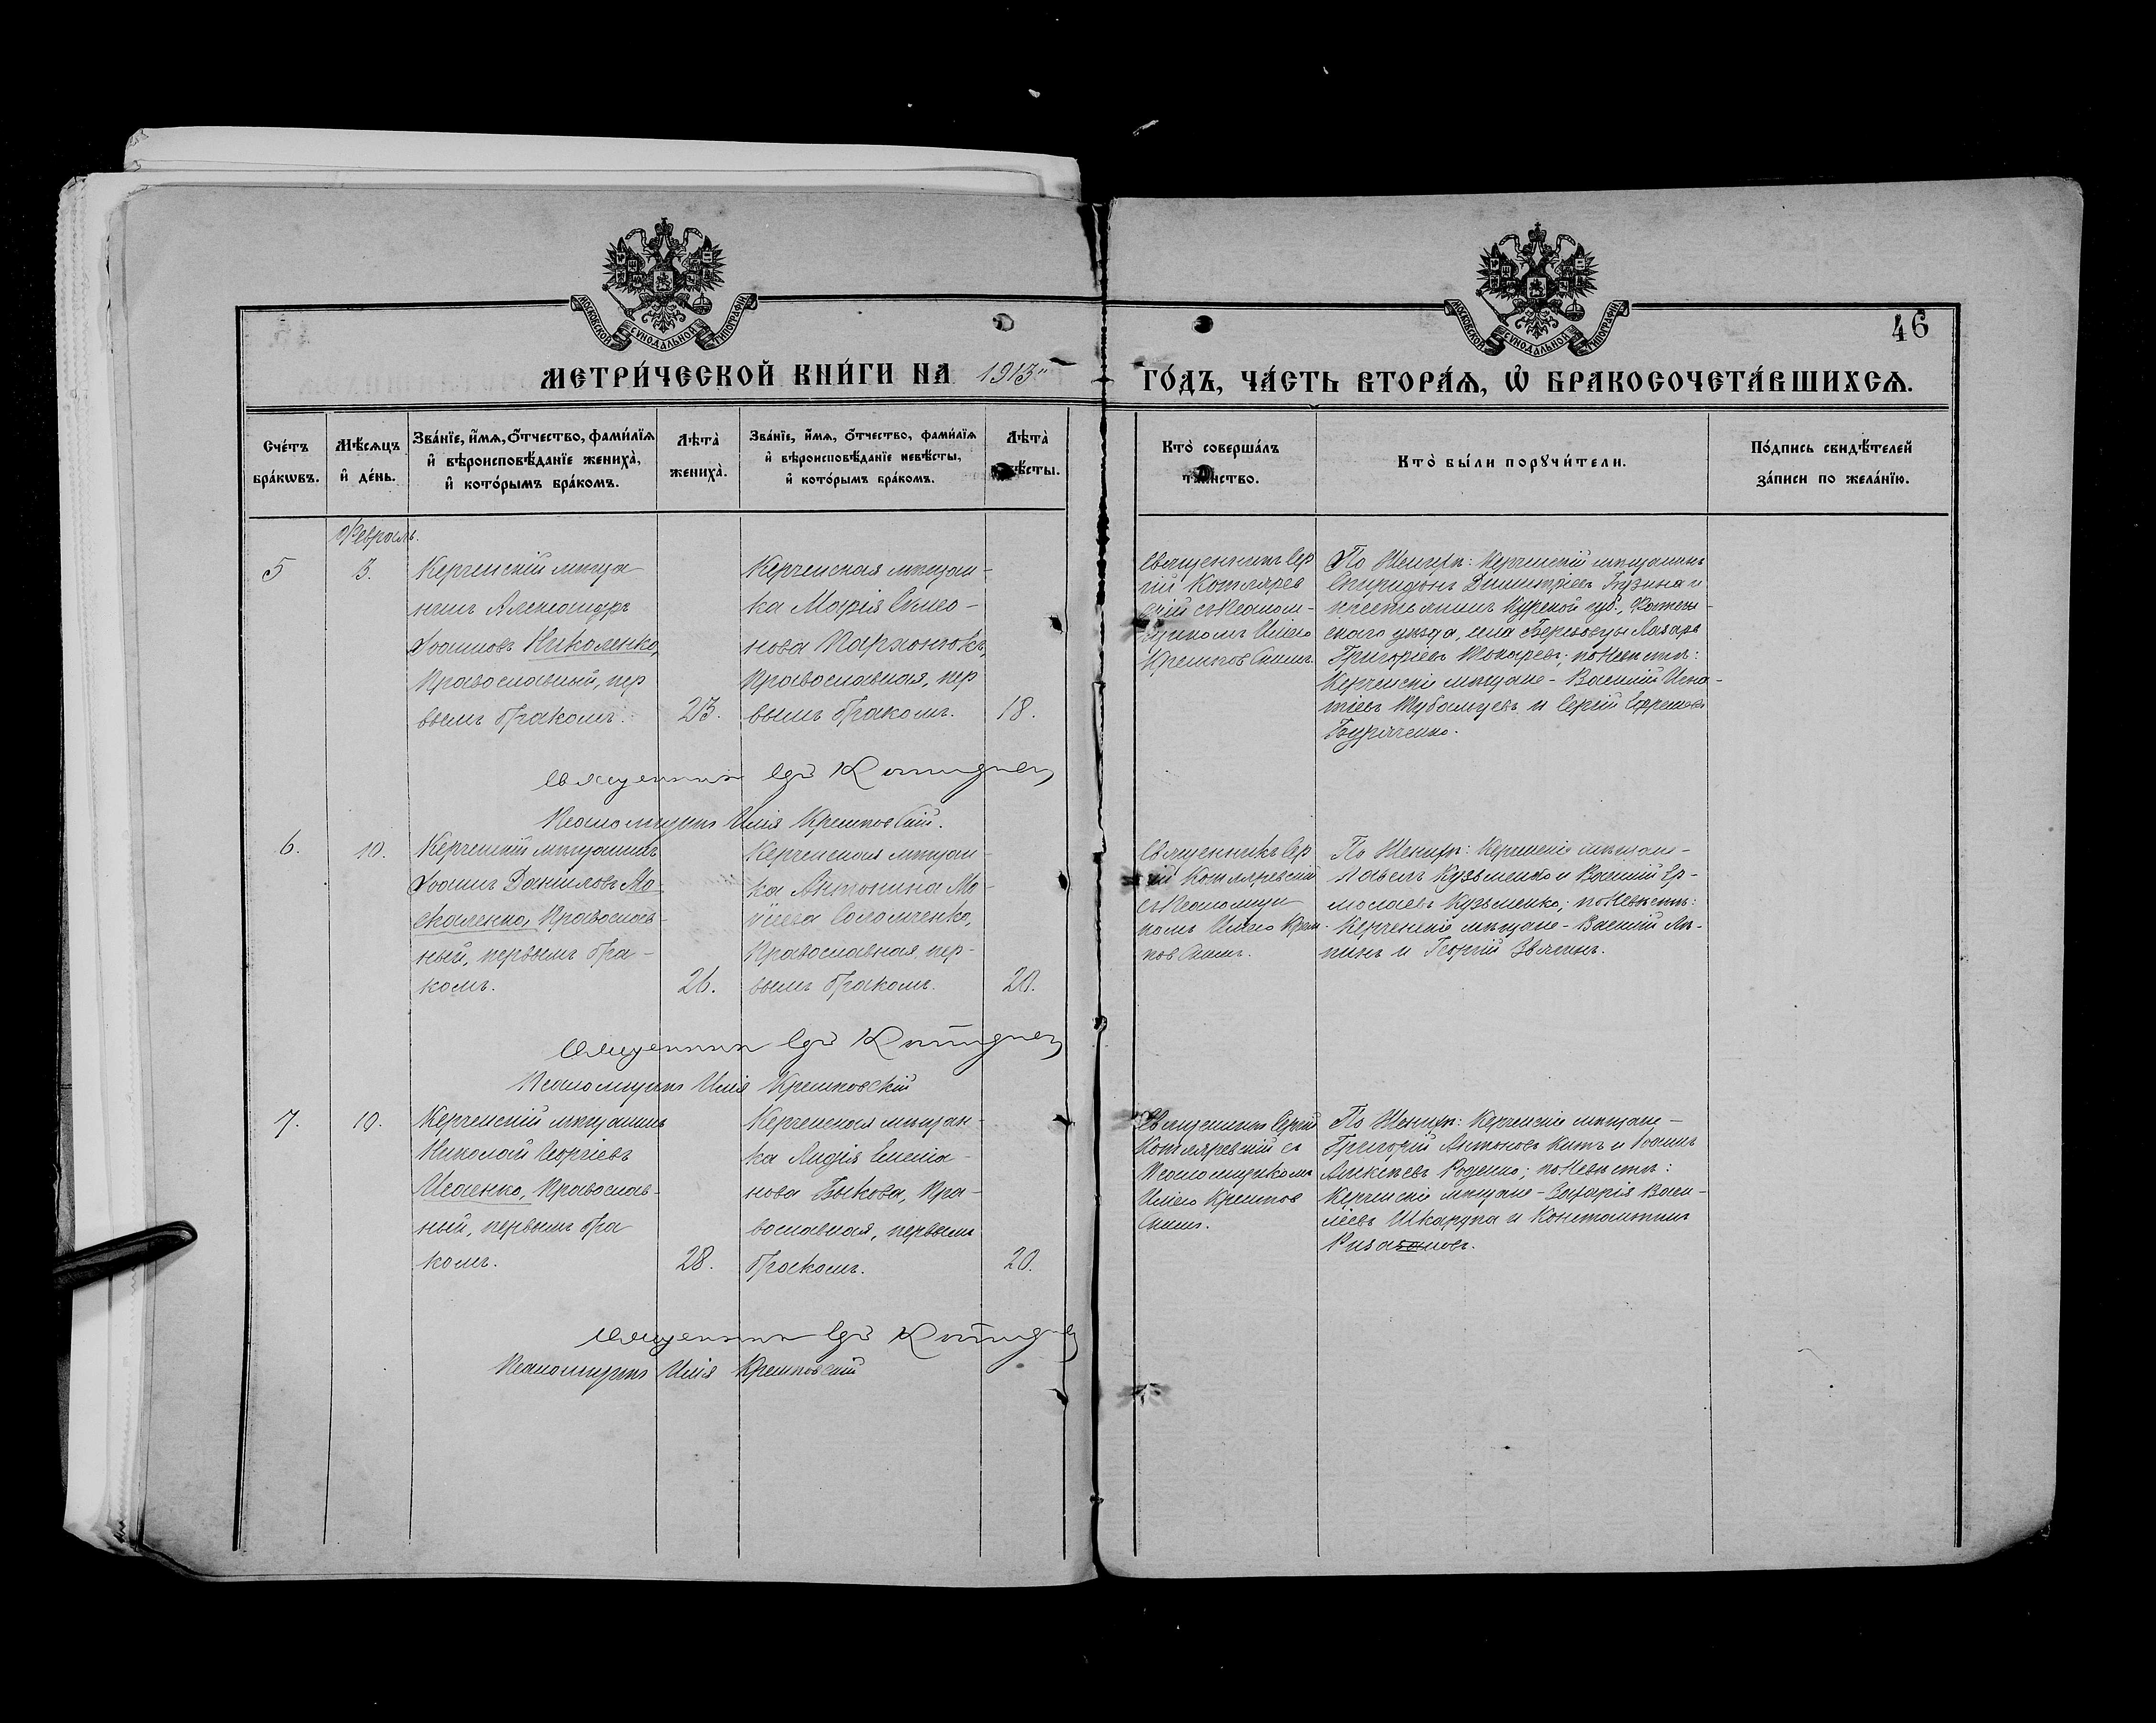 МОСКОВСКОЙ СѴНОДАЛЬНОЙ ТИПОГРАФІИ
МОСКОВСКОЙ СѴНОДАЛЬНОЙ ТИПОГРАФІИ
46
МЕТРИ́ЧЕСКОЙ КНИ́ГИ НА 1913 ГО́ДЪ, ЧА́СТЬ ВТОРА́Ѧ, Ѽ БРАКОСОЧЕТА́ВШИХСѦ.
Сче́тъ бра́кѡвъ.
Мѣ́сѧцъ и҆ де́нь.
Зва́нїе, и҆́мѧ, ѻ҆́тчество, фами́лїѧ и҆ вѣроисповѣ́данїе жениха̀, и҆ кото́рымъ бра́комъ.
Лѣта̀ жениха̀.
Зва́нїе, и҆́мѧ, ѻ҆́тчество, фами́лїѧ и҆ вѣроисповѣ́данїе невѣ́сты, и҆ кото́рымъ бра́комъ.
Лѣта̀ невѣ́сты.
Кто̀ соверша́лъ та́инство.
Кто̀ бы́ли порꙋчи́тели.
По́дпись свидѣ́телей за́писи по жела́нїю.
Февраль.
5
3.
Керченскій мѣща-
нинъ Александръ
Іоанновъ Николенко,
Православный, пер
вымъ бракомъ.
23.
Керченская мѣщан-
ка Марія Симео-
нова Пархонюкъ,
Православная, пер
вымъ бракомъ.
18.
Священникъ Сер
гій Котлярев
скій съ Псалом-
щикомъ Иліею
Крешповскимъ.
По Женихѣ: Керченскій мѣщанинъ
Спиридонъ Димитріевъ Бузина и
крестьянинъ Курской губ.,
скаго уѣзда, села Лазарь
Григоріевъ Токаревъ; по Невѣстѣ:
Керченскіе мѣщане - Василій Игна-
тіевъ и Сергій Ефремовъ
Бураченко.
Священникъ
Псаломщикъ Илія Крешповскій.
6.
10.
Керченскій мѣщанинъ
Іоаннъ Даніиловъ Мо-
скаленко, Православ-
ный, первымъ бра-
комъ.
26.
Керченская мѣщан-
ка Антонина Мо-
Соломченко,
Православная, пер-
вымъ бракомъ.
20.
Священникъ Сер
гій Котляревскій
съ Псаломщи
комъ Иліею Креш-
повскимъ.
По Женихѣ: Керченскіе мѣщане -
Павелъ Кузьменко и Василій Ер-
молаевъ Кузьменко; по Невѣстѣ:
Керченскіе мѣщане - Василій Ля-
пинъ и Георгій Звягинъ.
Священникъ
Псаломщикъ Илія Крешповскій
7.
10.
Керченскій мѣщанинъ
Николай Георгіевъ
Исаенко, Православ-
ный, первымъ бра
комъ.
28.
Керченская мѣщан-
ка Лидія Симеіа-
нова Быкова, Пра-
вославная, первымъ
бракомъ.
20.
Священникъ Сергій
Котляревскій съ
Псаломщикомъ
Иліею Крешпов
скимъ.
По Женихѣ: Керченскіе мѣщане -
Григорій Антоновъ Китъ и Іоаннъ
Алексѣевъ Роденко; по Невѣстѣ:
Керченскіе мѣщане - Захарія Васи-
ліевъ Шкарупа и Константинъ
Священникъ
Псаломщикъ Илія Крешповскій